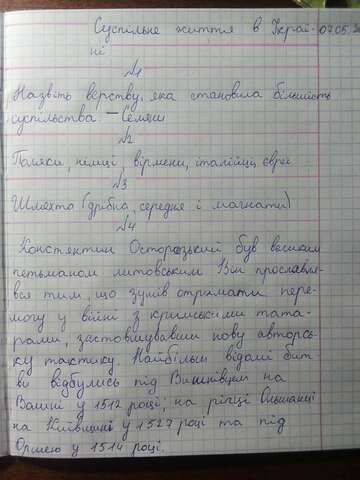 Суспільне життя в Украї- 07.05.
ні
№1
Назвіть верству, яка становила більшість
суспільства – Селяни
№2
Поляки, німці, вірмени, італійці, євреї
№3
Шляхта (дрібна, середня і магнати)
№4
Констянтин Острозький був великим
гетьманом литовським. Він прославив-
вся тим, що зумів отримати пере-
могу у війні з кримськими тата-
рами, застовшувавши нову авторсь-
ку тактику. Найбільш відомі бит-
ви відбулись під Вишнівцем на
Волині у 1512 році; на річці Ольшаниці
на Київщині у 1527 році та під
Оршею у 1514 році.